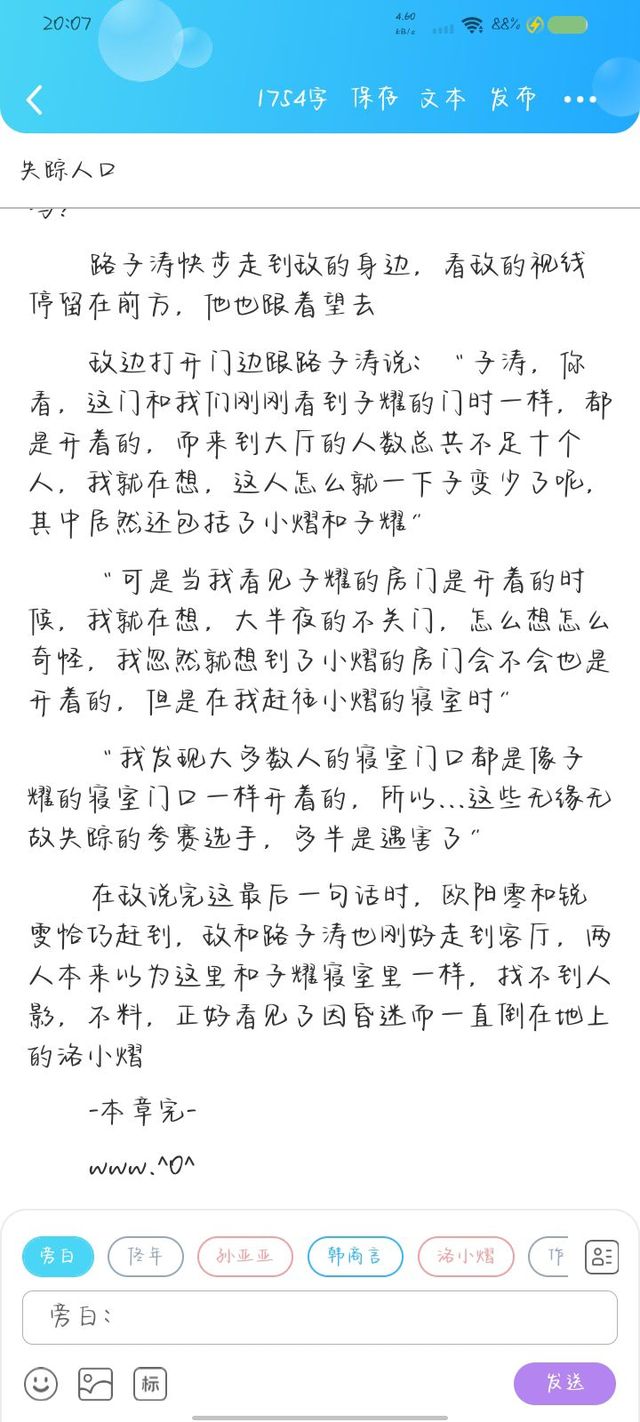 20:07
4.60
kB/s
88%
1754字 保存 文本 发布
失踪人口
吗？
路子涛快步走到敌的身边，看敌的视线
停留在前方，他也跟着望去
敌边打开门边跟路子涛说：“子涛，你
看，这门和我们刚刚看到子耀的门时一样，都
是开着的，而来到大厅的人数总共不足十个
人，我就在想，这人怎么就一下子变少了呢，
其中居然还包括了小熠和子耀”
“可是当我看见子耀的房门是开着的时
候，我就在想，大半夜的不关门，怎么想怎么
奇怪，我忽然就想到了小熠的房门会不会也是
开着的，但是在我赶往小熠的寝室时”
“我发现大多数人的寝室门口都是像子
耀的寝室门口一样开着的，所以...这些无缘无
故失踪的参赛选手，多半是遇害了”
在敌说完这最后一句话时，欧阳零和锐
雯恰巧赶到，敌和路子涛也刚好走到客厅，两
人本来以为这里和子耀寝室里一样，找不到人
影，不料，正好看见了因昏迷而一直倒在地上
的洛小熠
-本章完-
www.^O^
旁白 佟年 孙亚亚 韩商言 洛小熠 作
旁白：
标
发送